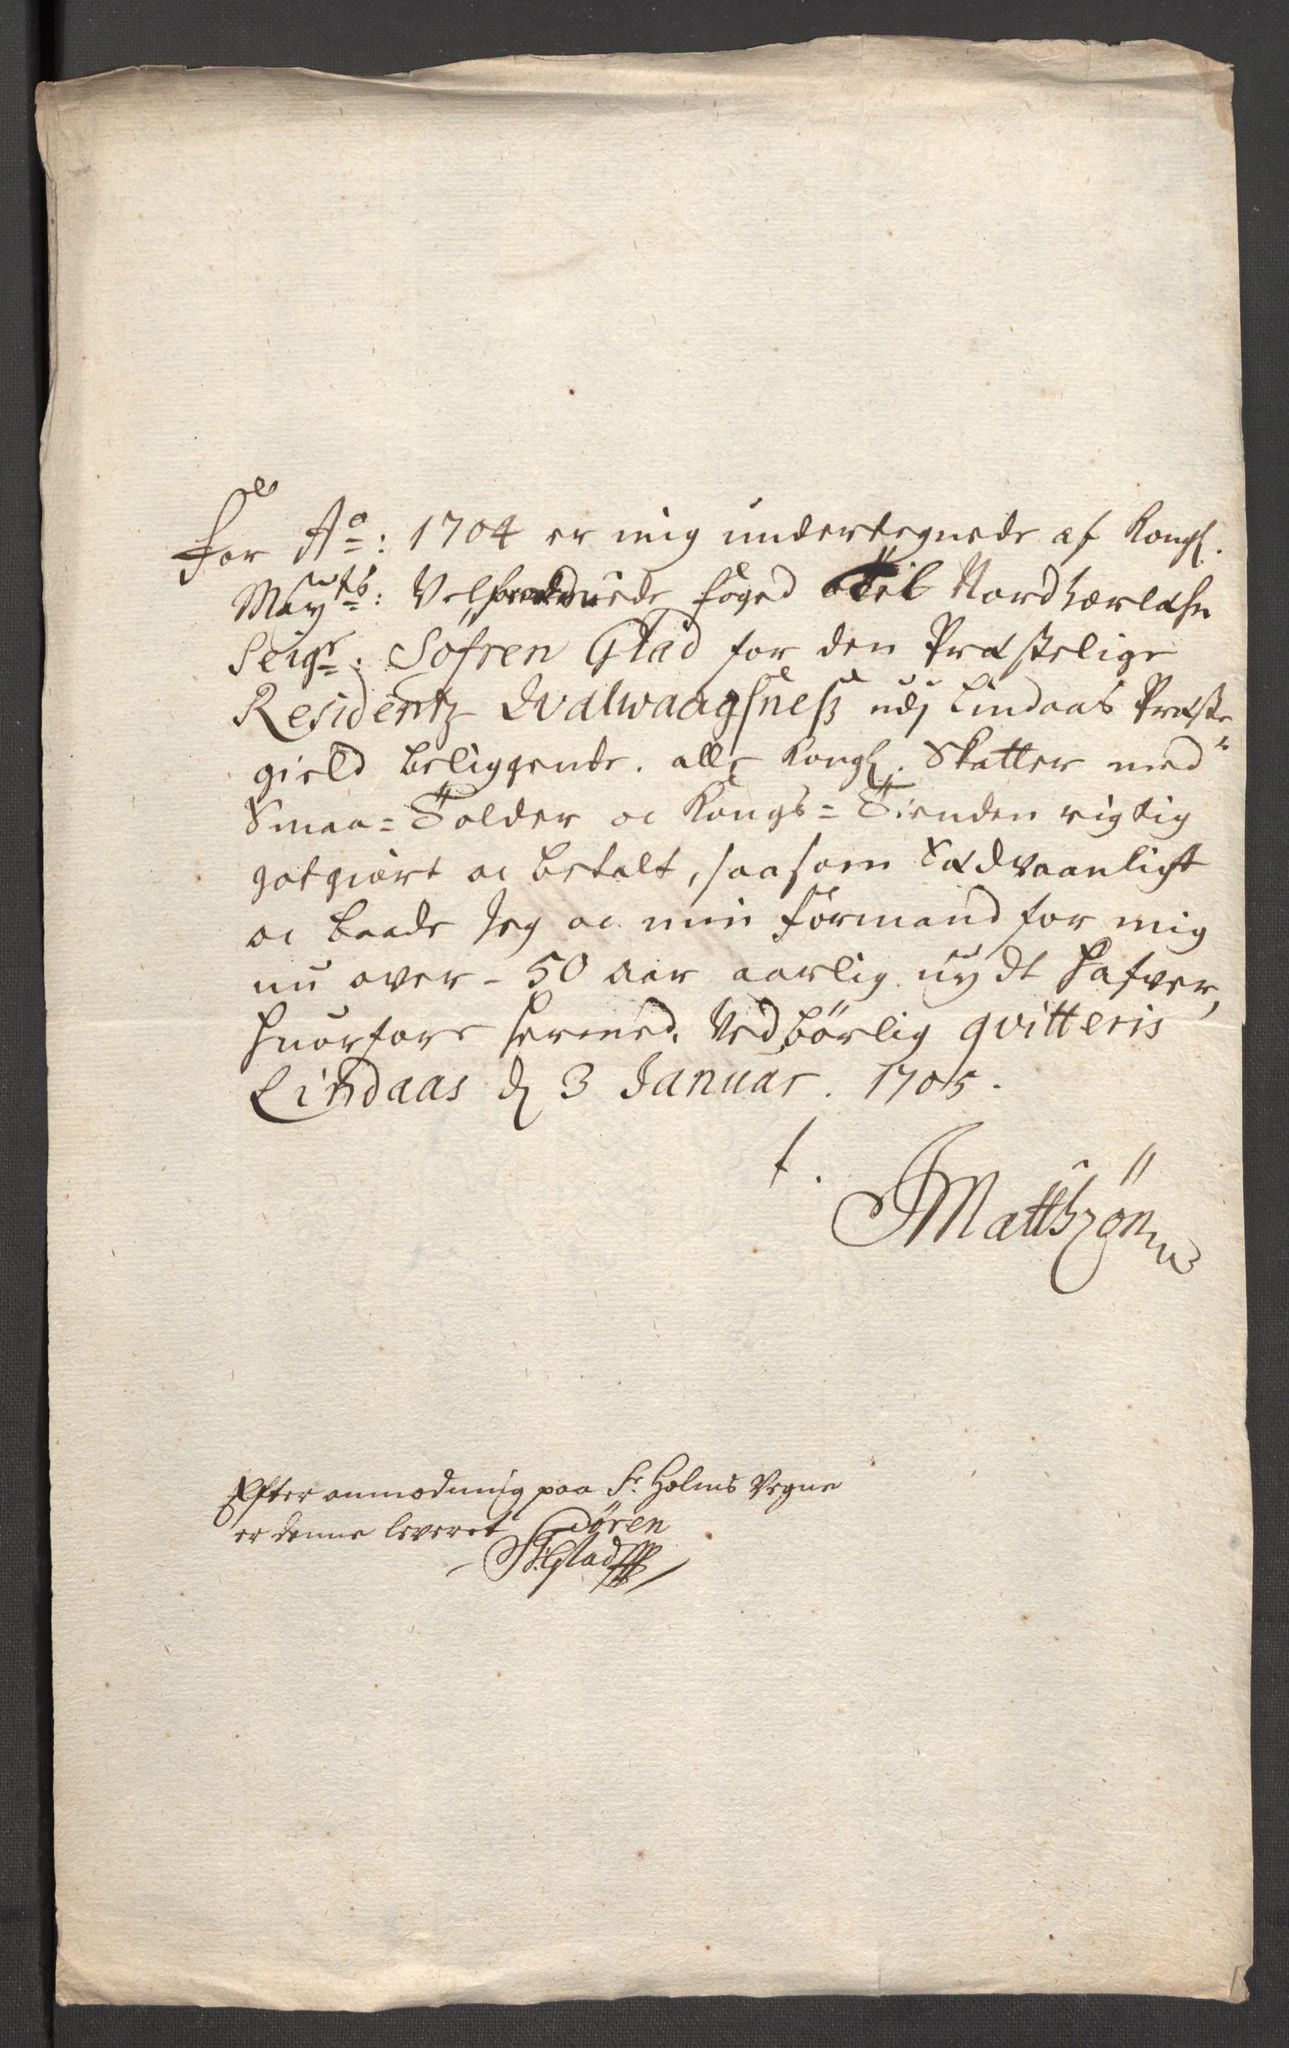 For Aº: 1704 er mig undertegnede af Kongl.
Mayts: Velfornemmede foged til Nordhorlehn
Seigr: Søfren Glad for den Præstelige
Residentz Qvalwaagsness udj Lindaas Præste
gield beliggende. alle Kongl. Skatter med
Smaa=Tolder oc Kongs=Tienden rigtig
gotgiort oc betalt, saasom Sædvaanligt
oc baade Jeg oc min Formand for mig
nu over - 50 aar aarlig nydt hafver,
huorfore hermed Vedbørlig qvitteris
Lindaas d 3 Januar. 1705.
t.
JMatthzøn
Efter anmodning paa Sr. Holms Vegne
er denne leveret Sören